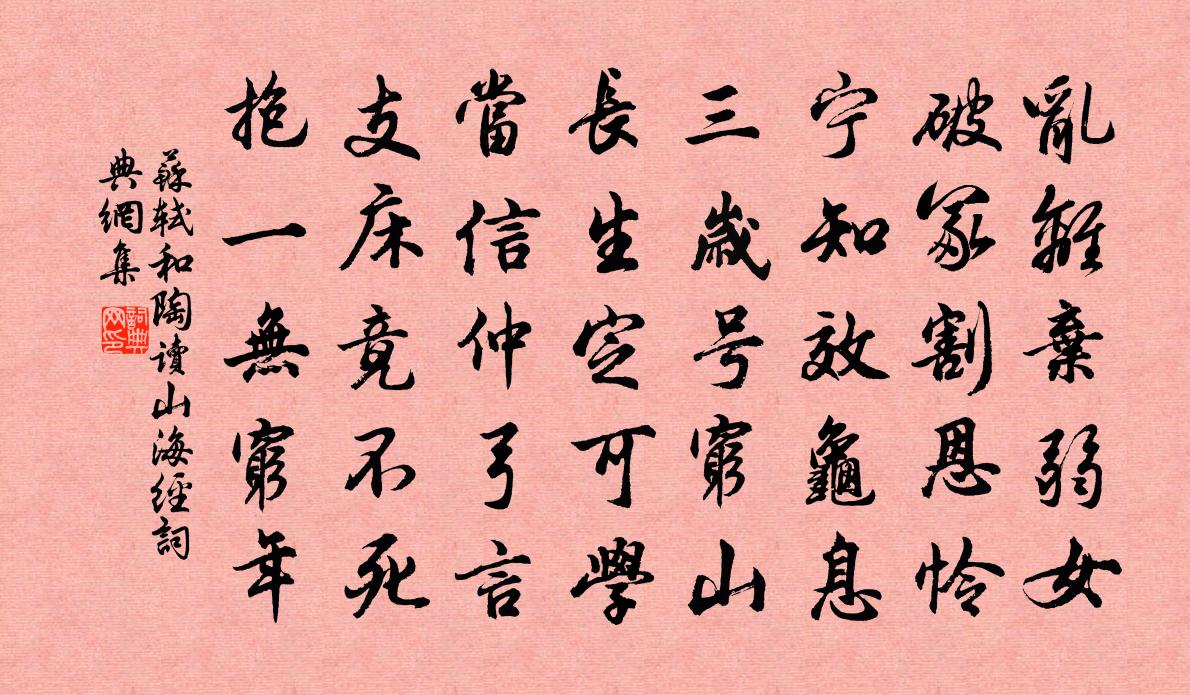 亂離棄弱女
破冢割恩怜
宁知效龜息
三歲号窮山
長生定可學
當信仲弓言
支床竟不死
抱一無窮年
蘇軾和陶讀山海經詞
典網集
詞典
网印